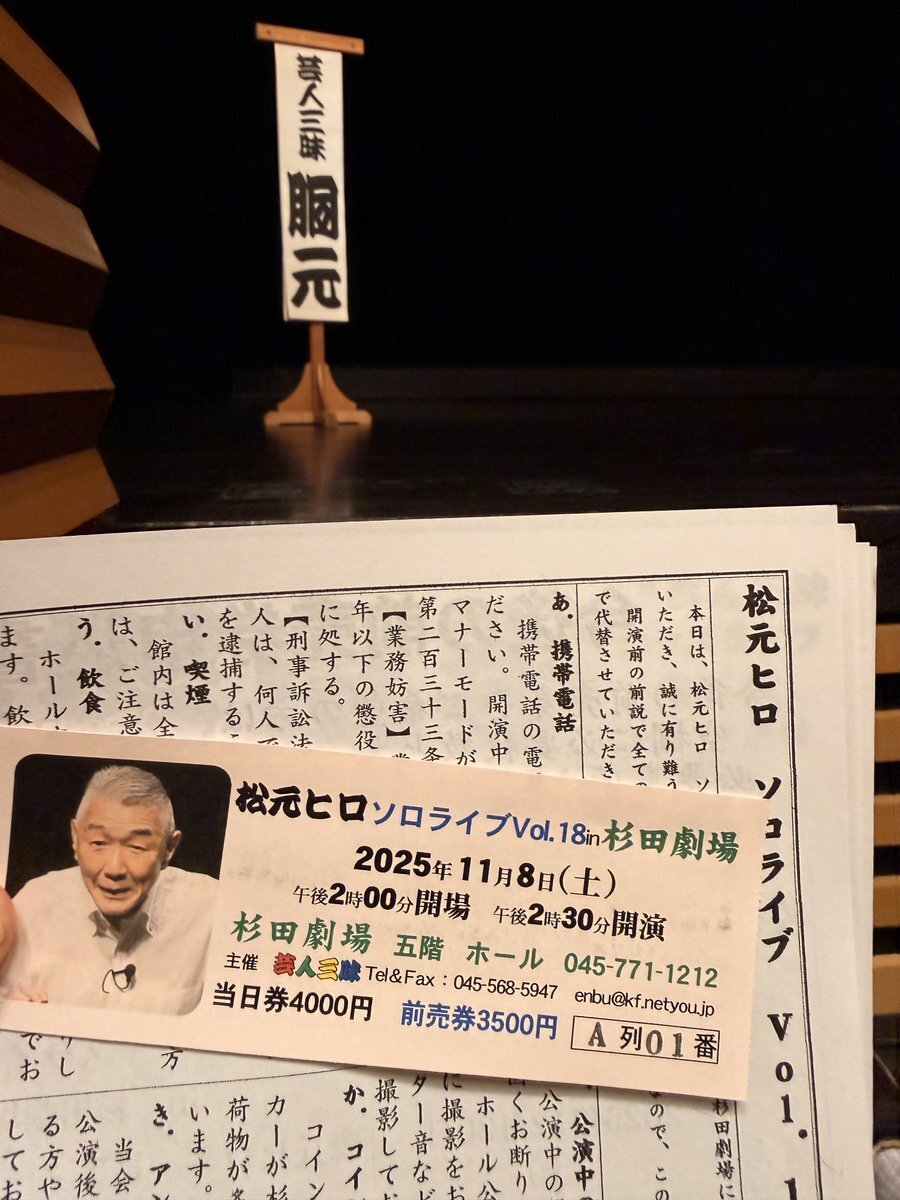 芸人三昧
胴元
松元ヒロ ソロライブ Vol. 1
本日は、松元ヒロ ソ
いただき、誠に有り難う
開演前の前説で全ての
で代替させていただき
あ．携帯電話
携帯電話の電
ださい。開演中
マナーモードが
第二百三十三条
【業務妨害】業
年以下の懲役
に処する。
【刑事訴訟法
人は、何人で
を逮捕するこ
い．喫煙
館内は全
は、ご注意
う．飲食
ホール
ます。飲
松元ヒロソロライブVol.18in杉田劇場
2025年11月8日(土)
午後2時00分開場 午後2時30分開演
杉田劇場 五階 ホール 045-771-1212
主催 芸人三昧 Tel&Fax：045-568-5947 enbu@kf.netyou.jp
当日券4000円 前売券3500円 A列01番
杉田劇場に
ので、この
公演中の
公演中の
くお断り
ホール公
に撮影をお
ター音など
撮影してお
か．コイ
コイン
カーが杉
荷物が多
います。
き．アン
当会
公演後
る方や
してお
方
りし
でお